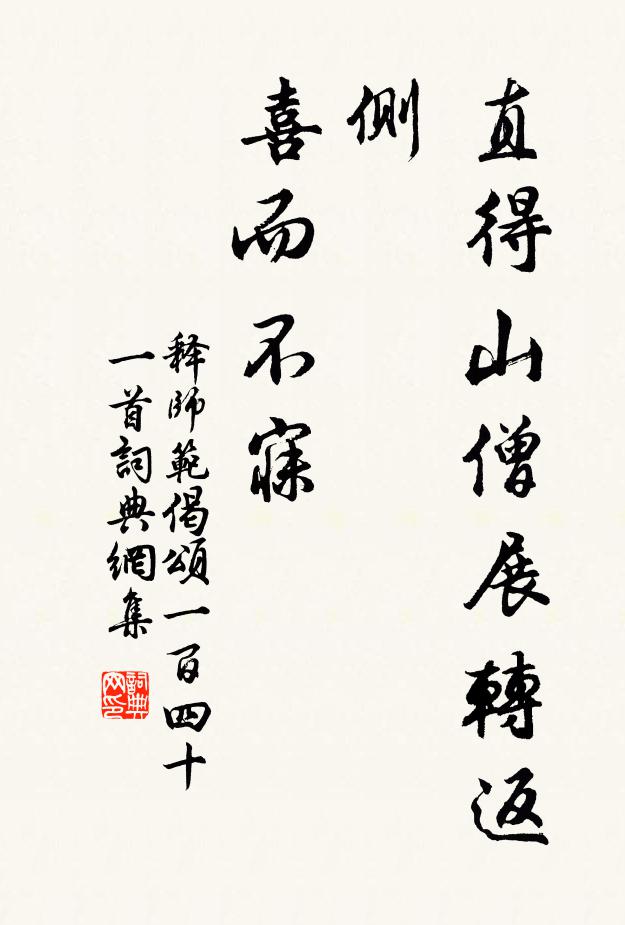 直得山僧展轉返
側
喜而不寐
释師範偈頌一百四十
一首詞典網集
詞典网印